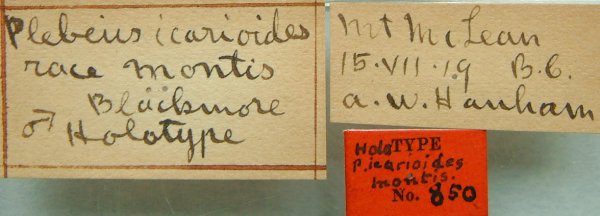 Plebeius icarioides
race montis
Blackmore
♂ Holotype
Mt McLean
15·VII·19 B.C.
a. W. Hanham
HoloTYPE
P. icarioides
montis.
No. 850